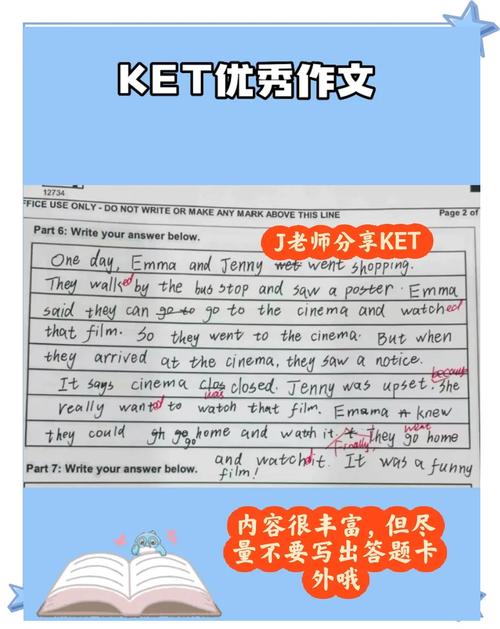 KET优秀作文
12734
FFICE USE ONLY - DO NOT WRITE OR MAKE ANY MARK ABOVE THIS LINE
Page 2 of
Part 6: Write your answer below.
J老师分享KET
One day, Emma and Jenny wet went shopping.
They walked by the bus stop and saw a poster. Emma
said they can go to go to the cinema and watched
that film. So they went to the cinema. But when
they arrived at the cinema, they saw a notice.
because
It says cinema clos closed. Jenny was upset. She
was
really wanted to watch that film. Emama knew
they could gh go home and watch it. They go home
go
went
Finally,
Part 7: Write your answer below.
and watch it. It was a funny
film!
内容很丰富，但尽
量不要写出答题卡
外哦